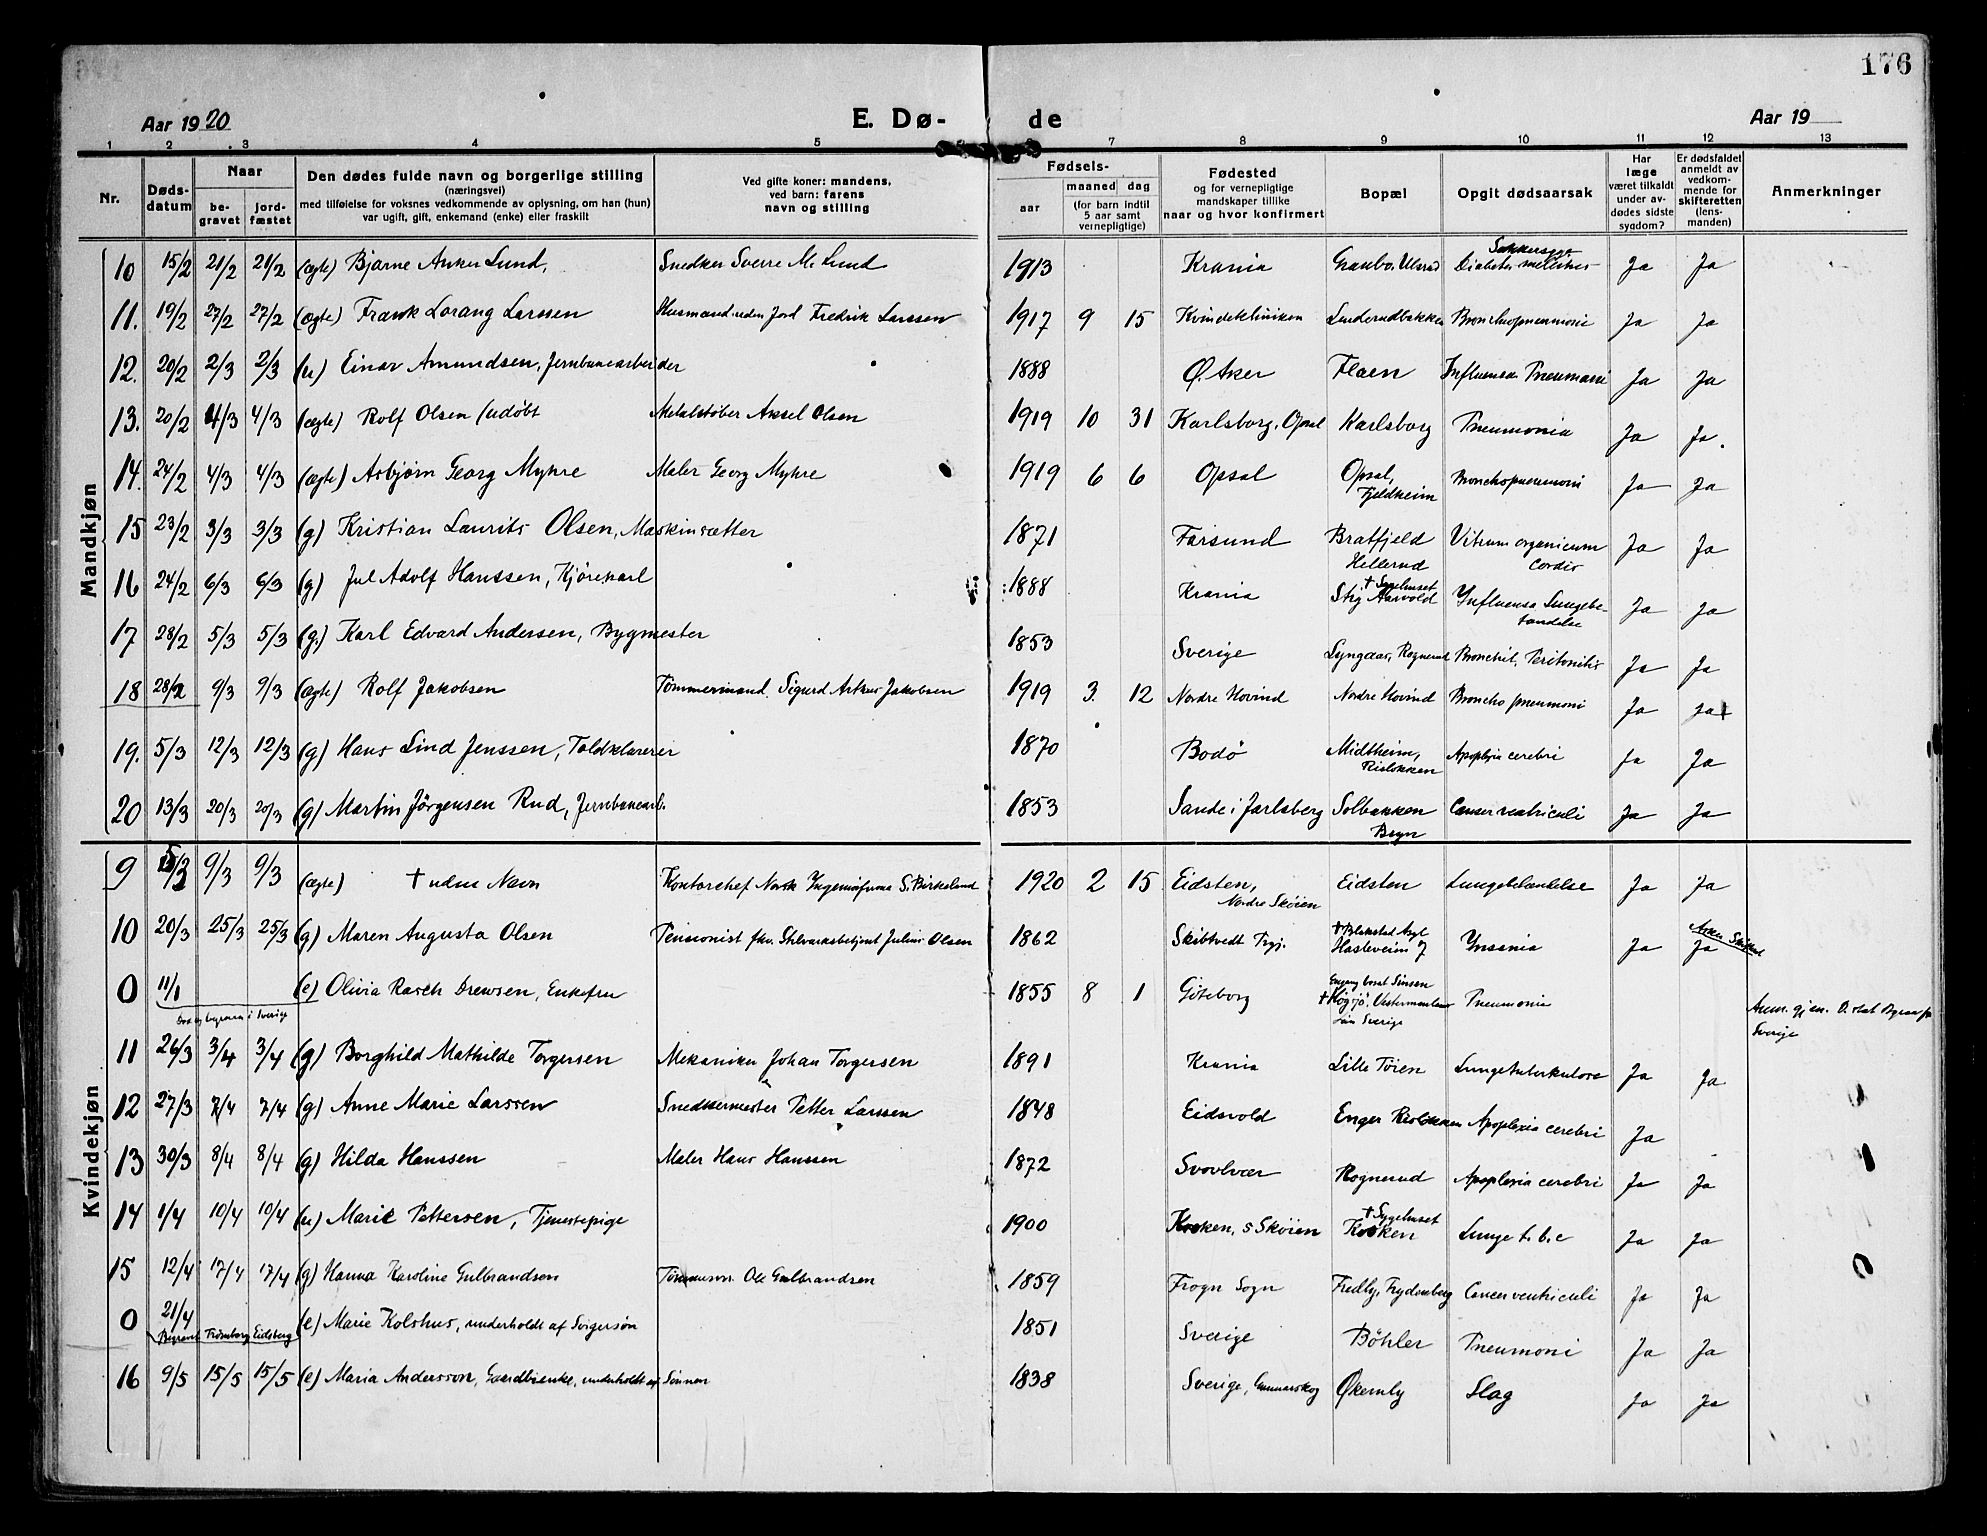 176
Aar 1920 E. Dø- de Aar 19
1 2 3 4 5 7 8 9 10 11 12 13
Nr. Døds-datum Naar be-gravet jord-fæstet Den dødes fulde navn og borgerlige stilling (næringsvei) med tilføielse for voksnes vedkommende av oplysning, om han (hun) var ugift, gift, enkemand (enke) eller fraskilt Ved gifte koner: mandens, ved barn: farens navn og stilling Fødsels- aar maaned dag (for barn indtil 5 aar samt vernepligtige) Fødested og for vernepligtige mandskaper tillike naar og hvor konfirmert Bopæl Opgit dødsaarsak Har læge været tilkaldt under av-dødes sidste sygdom? Er dødsfaldet anmeldt av vedkom-mende for skifteretten (lens-manden) Anmerkninger
Mandkjøn
10 15/2 21/2 21/2 (ægte) Bjarne Anker Lund, Snedker Sverre M. Lund 1913 Krania Ulsrud Sukkersyge Diabetes mellitus Ja Ja
11. 19/2 27/2 27/2 (ægte) Frank Lorang Larssen Husmand uden Jord Fredrik Larssen 1917 9 15 Kvindeklinikken Lunderudbakken Bronchopneumoni Ja Ja
12. 20/2 2/3 2/3 (u) Einar Amundsen, Jernbanearbeider 1888 Ø. Aker Flaen Influensa Pneumoni Ja Ja
13. 20/2 4/3 4/3 (ægte) Rolf Olsen (udøbt Metalstøber Aksel Olsen 1919 10 31 Karlsborg, Opsal Karlsborg Pneumonia Ja Ja.
14. 24/2 4/3 4/3 (ægte) Asbjørn Georg Myhre Maler Georg Myhre 1919 6 6 Opsal Opsal, Fjeldheim Bronchopneumoni Ja Ja
15 23/2 3/3 3/3 (g) Kristian Laurits Olsen, Maskinsætter 1871 Farsund Bratfjeld Hellerud Vitium organicum Cordis Ja Ja
16 24/2 6/3 6/3 (g) Jul Adolf Hanssen, Kjørekarl 1888 Krania † Sygehuset Stig Aarvold Influensa Lungebetændelse Ja Ja
17 28/2 5/3 5/3 (g.) Karl Edvard Andersen, Bygmester 1853 Sverige Lyngaas, Rognerud Bronchit, Peritonitis Ja Ja
18 28/2 9/3 9/3 (ægte) Rolf Jakobsen Tømmermand. Sigurd Jakobsen 1919 3. 12 Nordre Hovind Nordre Hovind Broncho pneumoni Ja Ja
19. 5/3 12/3 12/3 (g) Hans Lind Jenssen, Toldklarerer 1870 Bodö Midtheim, Risløkken Apoplexia cerebri Ja Ja
20 13/3 20/3 20/3 (g) Martin Jörgensen Rud, Jernbanearb. 1853 Sande i Jarlsberg Solbakken Bryn Cancer ventriculi Ja Ja
Kvindekjøn
9 9/3 9/3 (ægte) † uden Navn Kontorchef Norsk S. Birkelund 1920 2 15 Eidsten, Nordre Skøien Eidsten Lungebetændelse Ja Ja
10 20/3 25/3 25/3 (g) Maren Augusta Olsen Pensionist Julius Olsen 1862 Skibtvedt † Blakstad Asyl Hasleveien 7 Insania Ja Ja
0 11/1 (e) Olivia Rasch Drewsen, Enkefru 1855 8 1 Göteborg Sinsen Sverige Pneumonia Anm. gjen. Sverige
Død og begraven i Sverige
11 26/3 3/4 3/4 (g) Borghild Mathilde Torgersen Mekaniker Johan Torgersen 1891 Krania Lille Tøien Lungetuberkulose Ja Ja
12 27/3 7/4 7/4 (g) Anne Marie Larssen Snedkermester Petter Larssen 1848 Eidsvold Enger Risløkken Apoplexia cerebri Ja
13 30/3 8/4 8/4 (g) Hilda Hanssen Maler Hans Hanssen 1872 Svovlvær Rognerud Apoplexia cerebri Ja Ja
14 1/4 10/4 10/4 (u) Marie Pettersen, Tjenestepige 1900 Kroken, S Skøien † Sygehuset Kroken Lunge t. b. c Ja Ja
15 12/4 17/4 17/4 (g) Hanna Karoline Gulbrandsen Tømmerm. Ole Gulbrandsen 1859 Frogn Sogn Fredly, Frydenberg Cancer ventriculi Ja Ja
0 21/4 Begravet Trømborg Eidsberg (e) Marie Kolshus, underholdt af Svigersøn 1851 Sverige Böhler Pneumoni Ja Ja
16 9/5 15/5 15/5 (e) Maria Andersson, Gaardbrenke, underholdt af Sønnen 1838 Sverige, Gunnarskog Økernly Slag Ja Ja